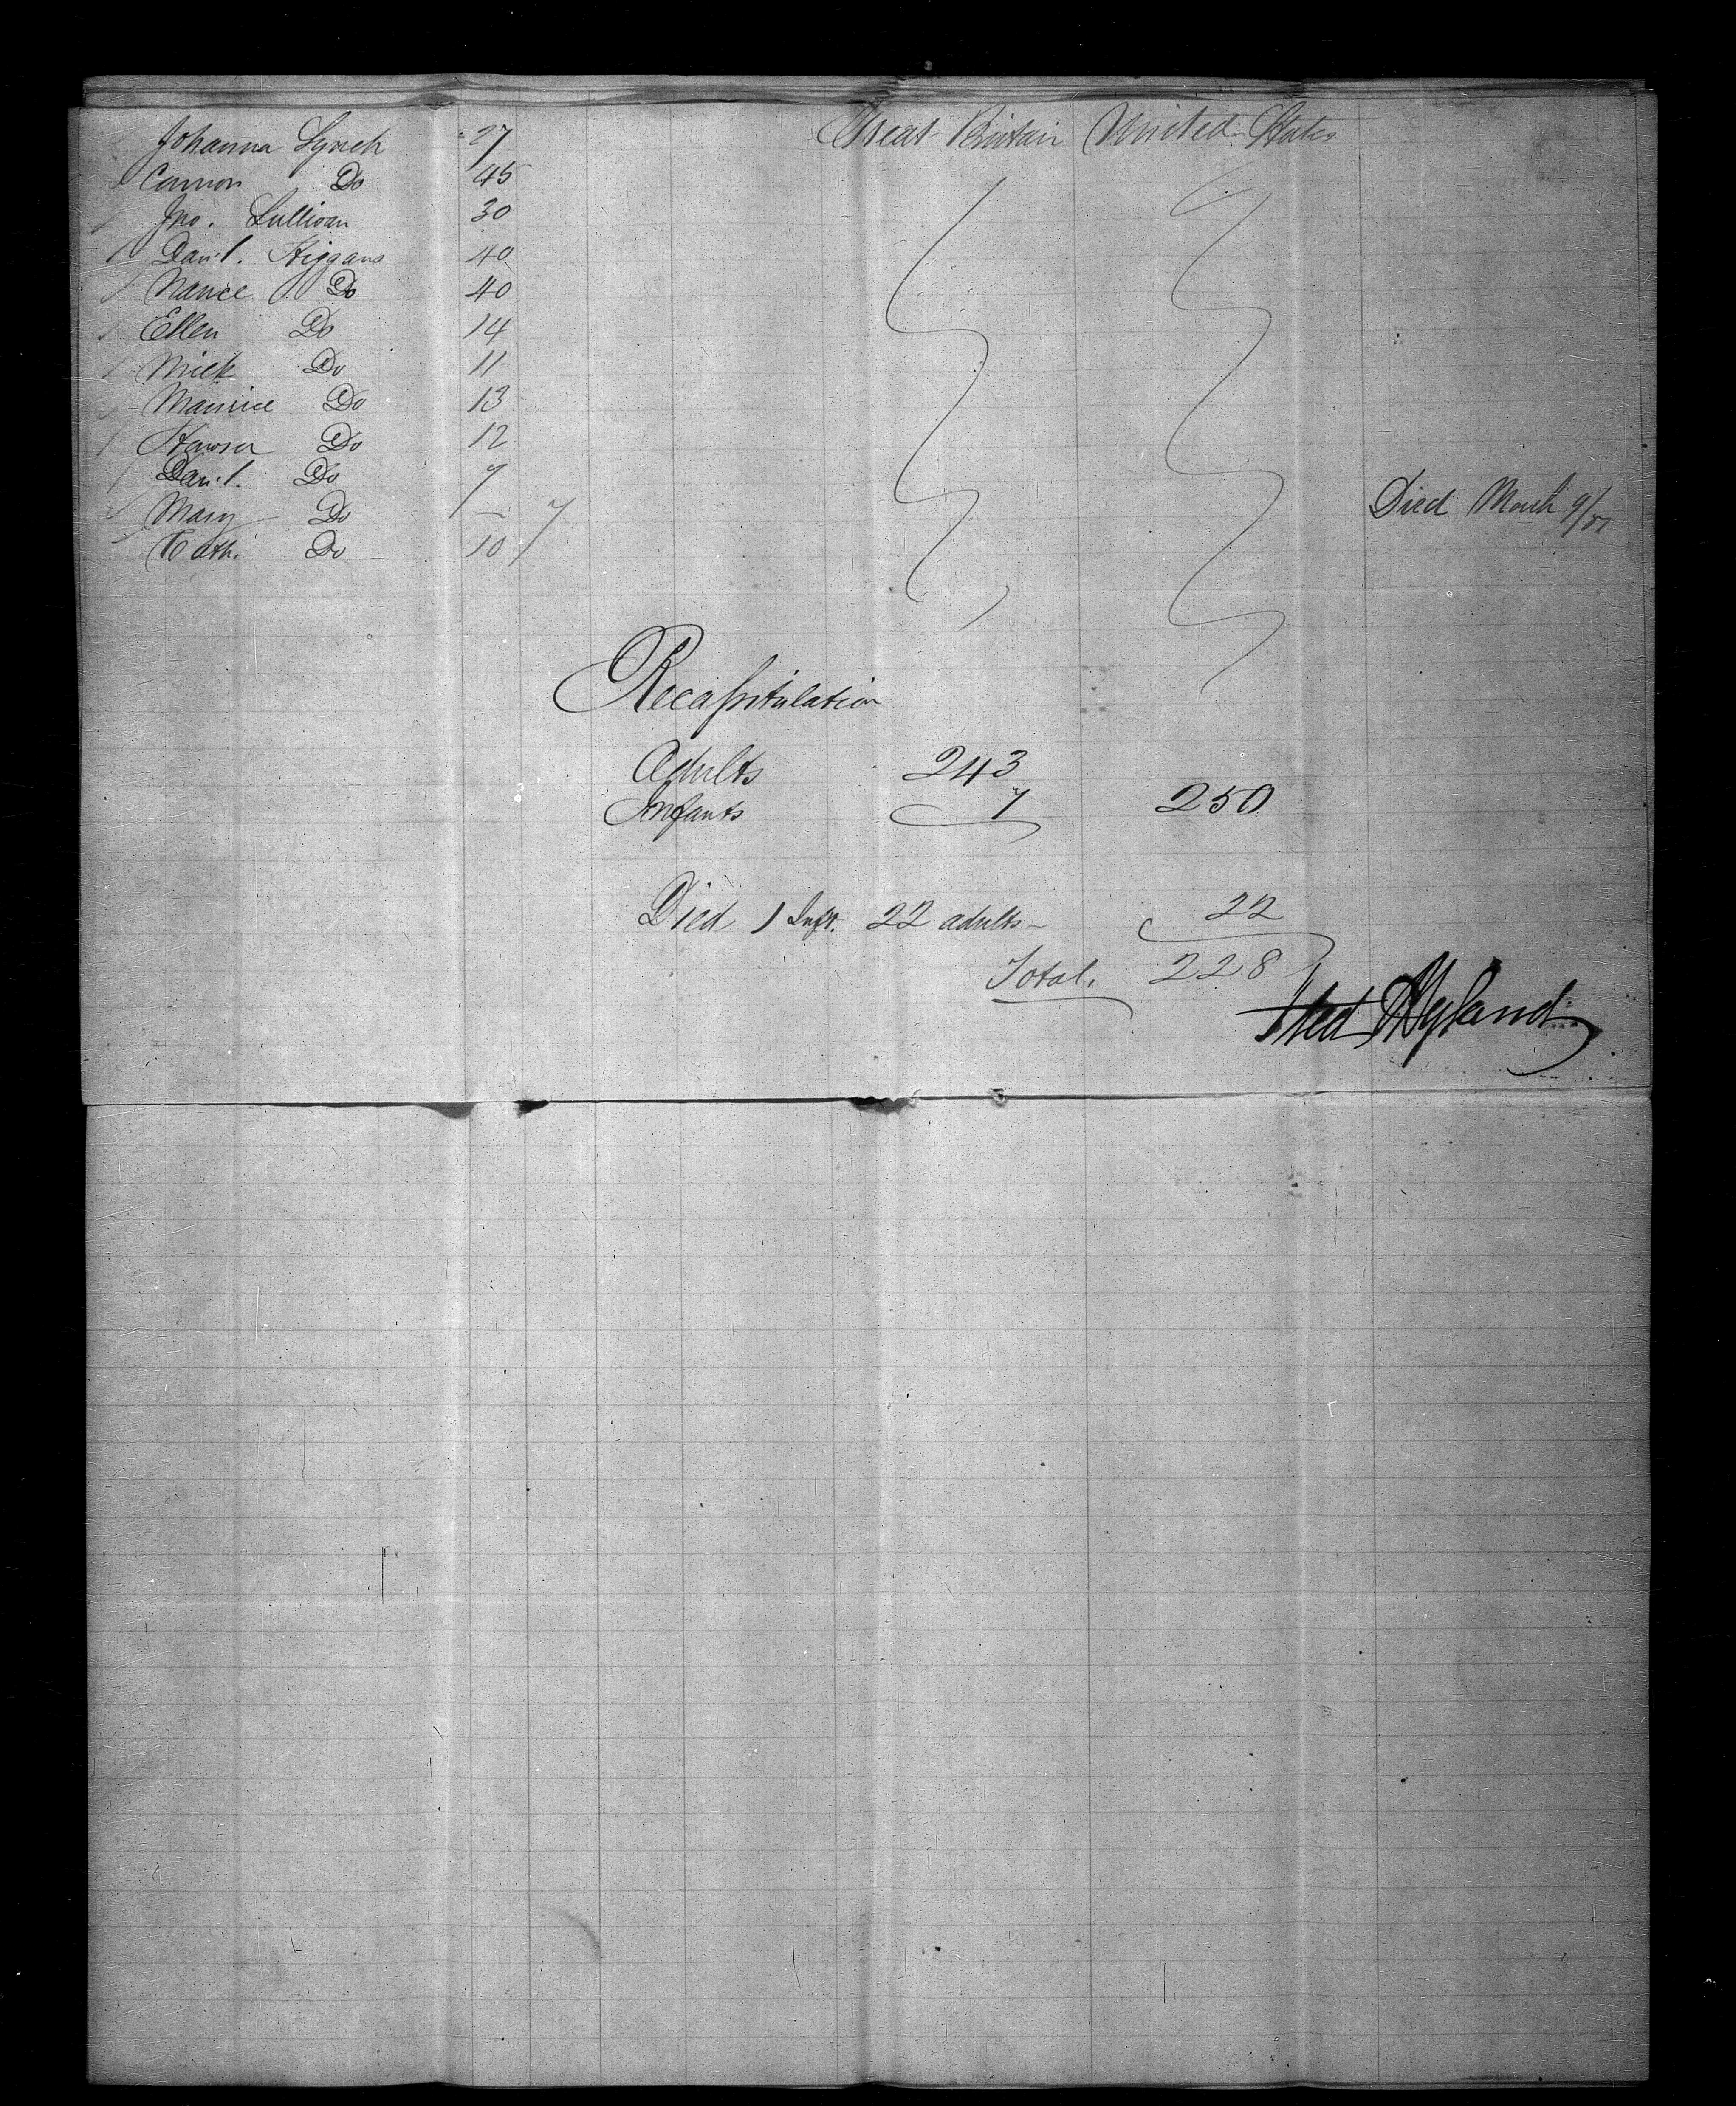 Johanna Lynch 27 Great Britain United States
Connor Do 45
Jno. Sullivan 30
Danl. Higgans 40
Nance Do 40
Ellen Do 14
Mick Do 11
Maurice Do 13
Do 12
Danl. Do 7
Mary Do — 7 Died March 9/51
Cath. Do 10
Recapitulation
Adults 243
Infants 7 250
Died 1 Inft. 22 adults — 22
Total. 228
Hyland